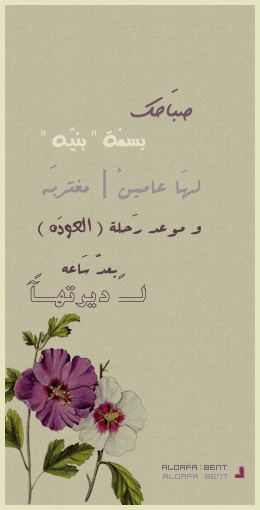 صبَاحك
بسمْة " بنيّه "
لهَا عامينْ | مغتربَه
و موعد رَحلة ( العودَه )
بعدّ سَاعه
لـــ ديرتهــاً
ALDAFA : BENT
ALDAFA : BENT